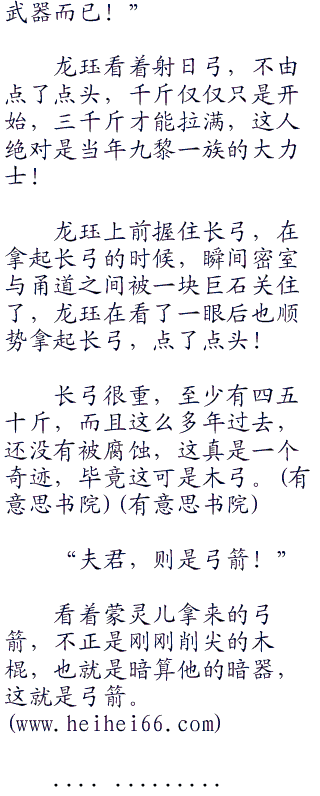 武器而已！”
龙珏看着射日弓，不由
点了点头，千斤仅仅只是开
始，三千斤才能拉满，这人
绝对是当年九黎一族的大力
士！
龙珏上前握住长弓，在
拿起长弓的时候，瞬间密室
与甬道之间被一块巨石关住
了，龙珏在看了一眼后也顺
势拿起长弓，点了点头！
长弓很重，至少有四五
十斤，而且这么多年过去，
还没有被腐蚀，这真是一个
奇迹，毕竟这可是木弓。(有
意思书院)(有意思书院)
“夫君，则是弓箭！”
看着蒙灵儿拿来的弓
箭，不正是刚刚削尖的木
棍，也就是暗算他的暗器，
这就是弓箭。
(www.heihei66.com)
.... .........